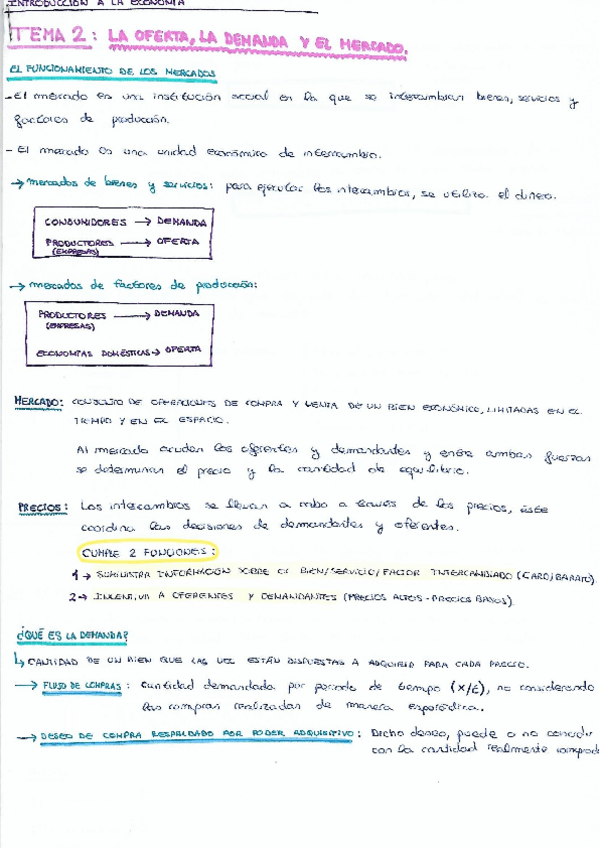 INTRODUCCIÓN A LA ECONOMÍA
TEMA 2: LA OFERTA, LA DEMANDA Y EL MERCADO.
EL FUNCIONAMIENTO DE LOS MERCADOS
- El mercado es una institución social en la que se intercambian bienes, servicios y
factores de producción.
- El mercado es una unidad económica de intercambio.
→ mercados de bienes y servicios: para ejecutar los intercambios, se utiliza el dinero.
CONSUMIDORES → DEMANDA
PRODUCTORES → OFERTA
(EMPRESAS)
→ mercados de factores de producción:
PRODUCTORES → DEMANDA
(EMPRESAS)
ECONOMÍAS DOMÉSTICAS → OFERTA
MERCADO: CONJUNTO DE OPERACIONES DE COMPRA Y VENTA DE UN BIEN ECONÓMICO, LIMITADAS EN EL
TIEMPO Y EN EL ESPACIO.
Al mercado acuden los oferentes y demandantes y entre ambas fuerzas
se determinan el precio y la cantidad de equilibrio.
PRECIOS: Los intercambios se llevan a cabo a través de los precios, éste
coordina las decisiones de demandantes y oferentes.
CUMPLE 2 FUNCIONES:
1 → SUMINISTRA INFORMACIÓN SOBRE EL BIEN/SERVICIO/FACTOR INTERCAMBIADO (CARO/BARATO).
2 → INCENTIVA A OFERENTES Y DEMANDANTES (PRECIOS ALTOS - PRECIOS BAJOS).
¿QUÉ ES LA DEMANDA?
↳ CANTIDAD DE UN BIEN QUE LAS UCC ESTÁN DISPUESTAS A ADQUIRIR PARA CADA PRECIO.
→ FLUJO DE COMPRAS: Cantidad demandada por periodo de tiempo (X/t), no considerando
las compras realizadas de manera esporádica.
→ DESEO DE COMPRA RESPALDADO POR PODER ADQUISITIVO: Dicho deseo, puede o no coincidir
con la cantidad realmente comprada